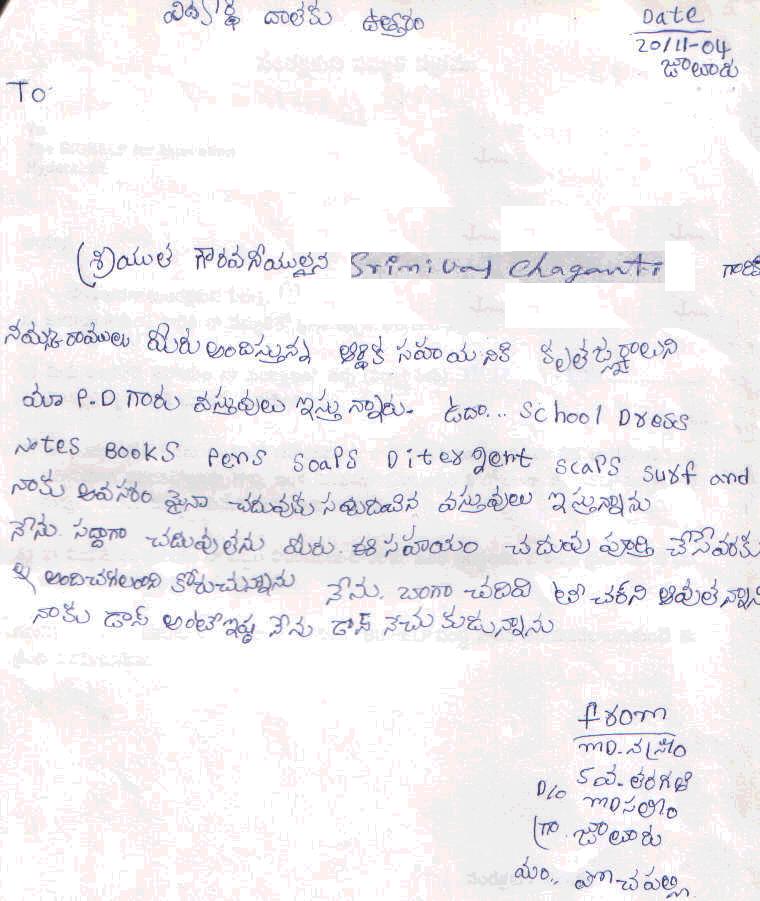 విద్యార్థి దాతకు ఉత్తరం
Date
20/11-04
జూలూరు
To
శ్రీయుత గౌరవనీయులైన Srinivas Chaganti గారికి
నమస్కారములు మీరు అందిస్తున్న ఆర్థిక సహాయనికి కృతజ్ఞురాలుని
మా P.D గారు వస్తువులు ఇస్తున్నారు. ఉదా... School Dress
notes Books Pens Soaps Ditergent scaps surf and
నాకు అవసరం మైనా చదువుకు సంబదించిన వస్తువులు ఇస్తున్నాను
నేను. సద్దాగా చదువుతను మీరు. ఈ సహయం చదువు పూర్తి చేసేవరకు
అందిచగలంది కోరుచున్నాను నేను. బంగా చదివి టీచర్ని అవుతన్నాని
నాకు డాన్స్ అంటే ఇష్ట నేను డాన్స్ నేచుకుడున్నాను
from
MD. నస్రీం
5వ. తరగతి
D/o MD సలీం
గ్రా. జూలూరు
మం,, పోచంపల్లి